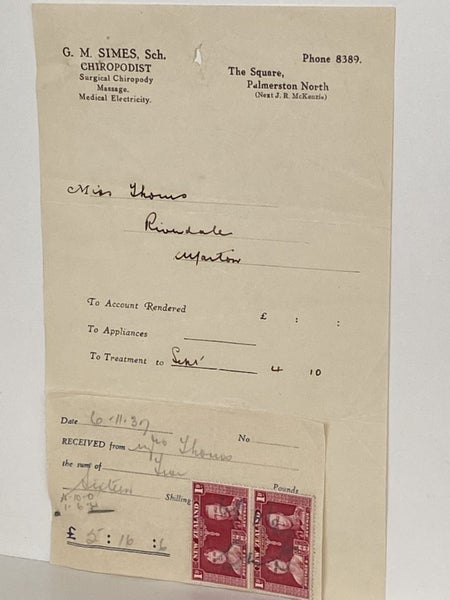 G. M. SIMES, Sch.
CHIROPODIST
Surgical Chiropody
Massage.
Medical Electricity.
Phone 8389.
The Square,
Palmerston North
(Next J. R. McKenzie)
Miss Thoms
Riverdale
Marton
To Account Rendered £ : :
To Appliances
To Treatment to Sept 4 10
Date 6.11.37
No
RECEIVED from Miss Thoms
the sum of Five
Pounds
Sixteen Shilling
4.10.0
1.6.
£ 5 : 16 : 6
1D 1D
NEW ZEALAND NEW ZEALAND
1D 1D